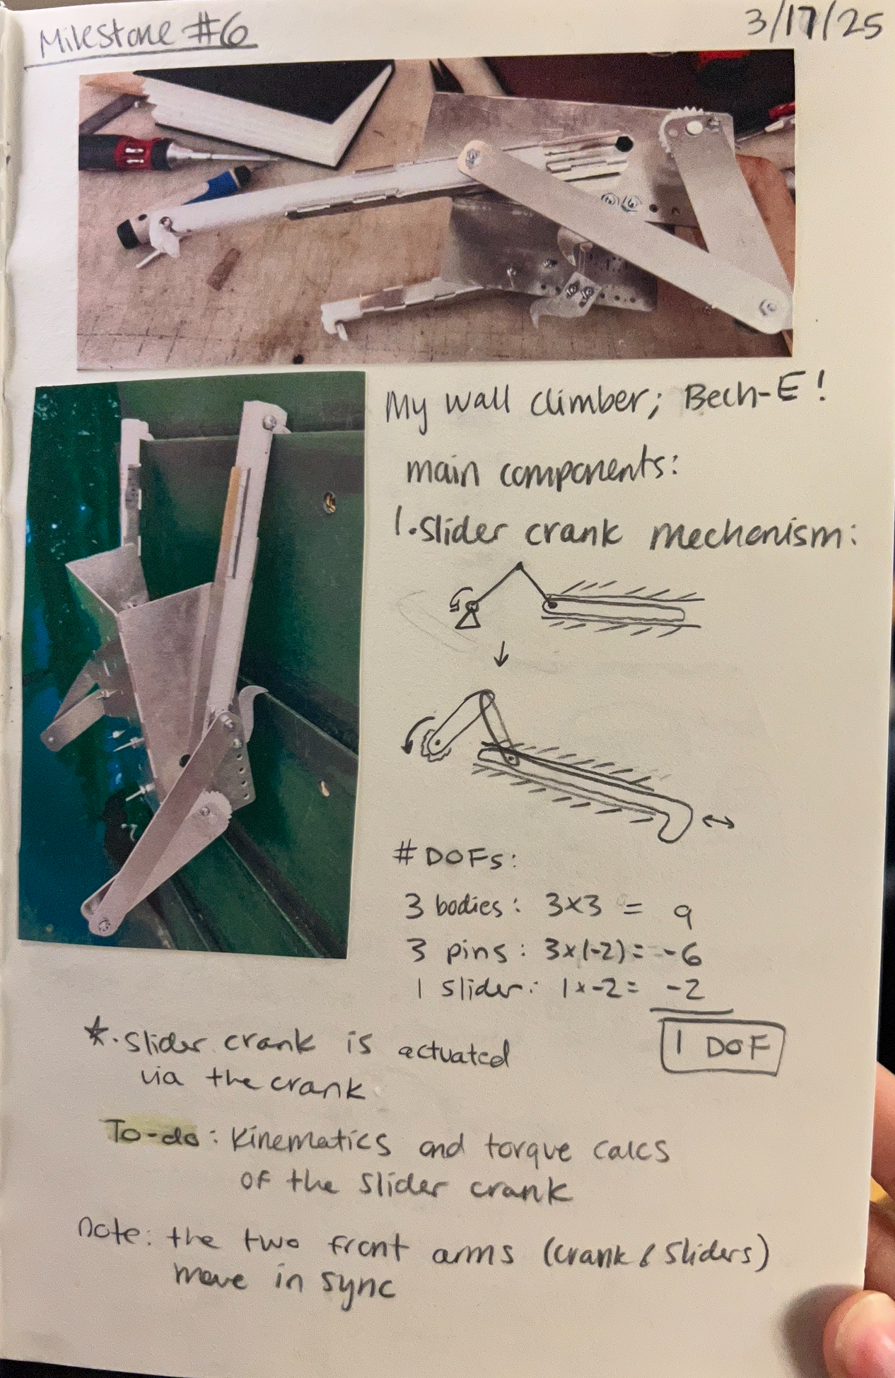 Milestone #6
3/17/25
My wall climber; Bech-E!
main components:
1. slider crank mechenism:
# DOFs:
3 bodies: 3x3 = 9
3 pins: 3x(-2) = -6
1 slider: 1x-2 = -2
1 DOF
*. slider crank is actuated
via the crank
To-do: kinematics and torque calcs
of the slider crank
note: the two front arms (crank & sliders)
move in sync